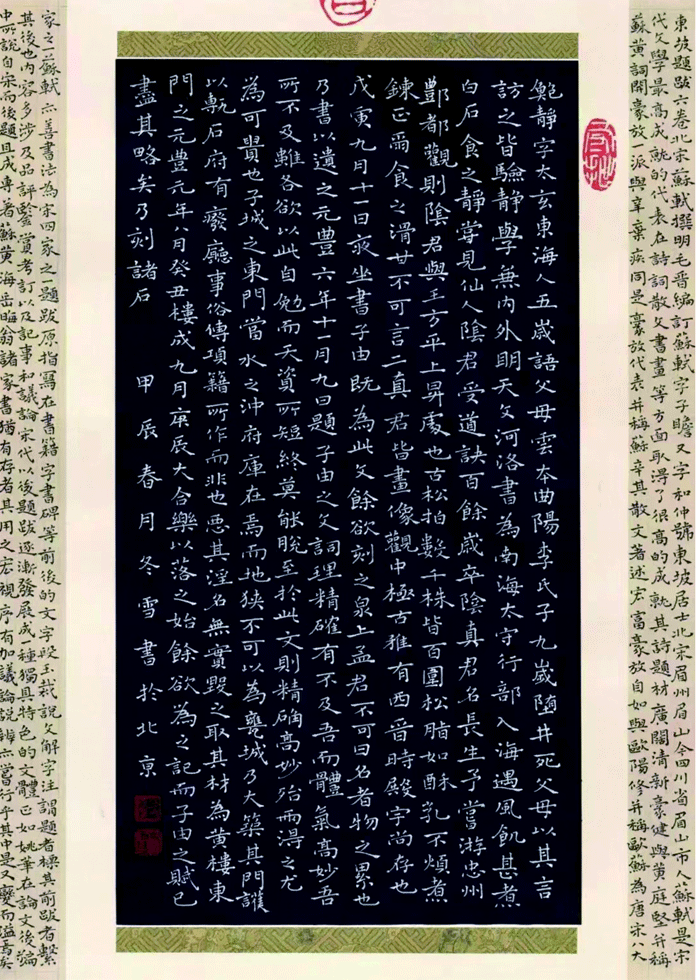 東坡題跋六卷北宋蘇軾撰明毛晉編訂蘇軾字子瞻又字和仲號東坡居士北宋眉州眉山今四川省眉山市人蘇軾是宋
代文學最高成就的代表在詩詞散文書畫等方面取得了很高的成就其詩題材廣闊清新豪健與黃庭堅并稱
蘇黃詞開豪放一派與辛棄疾同是豪放代表并稱蘇辛其散文著述宏富豪放自如與歐陽修并稱歐蘇為唐宋八大
鮑靜字太玄東海人五歲語父母雲本曲陽李氏子九歲墮井死父母以其言
訪之皆驗靜學無內外明天文河洛書為南海太守行部入海遇風飢甚煮
白石食之靜嘗見仙人陰君受道訣百餘歲卒陰真君名長生予嘗游忠州
酆都觀則陰君與王方平上昇處也古松拍數千株皆百圍松脂如酥乳不煩煮
鍊正爾食之滑甘不可言二真君皆畫像觀中極古雅有西晉時殿宇尚存也
戊寅九月十一日夜坐書子由既為此文餘欲刻之泉上孟君不可曰名者物之累也
乃書以遺之元豐六年十一月九日題子由之文詞理精確有不及吾而體氣高妙吾
所不及雖各欲以此自勉而天資所短終莫能脫至於此文則精確高妙殆而得之尤
為可貴也子城之東門當水之沖府庫在焉而地狹不可以為甕城乃大築其門護
以甎石府有廢廳事俗傳項籍所作而非也惡其淫名無實毀之取其材為黃樓東
門之元豐元年八月癸丑樓成九月庚辰大合樂以落之始餘欲為之記而子由之賦已
盡其略矣乃刻諸石 甲辰春月冬雪書於北京
家之一蘇軾六善書法為宋四家之一題跋原指寫在書籍字書碑等前後的文字段玉裁說文解字注謂題者標其前跋者繫
其後也內容多涉及品評鑒賞考訂以及記事和議論宋代以後題跋逐漸發展成種獨具特色的文體正如姚華在論文後編
中所說自宋而後題且成專著蘇黃海岳晦翁諸家書猶有存者其用之宏視序有加議論說辨六當行乎其中是又變而隘焉矣